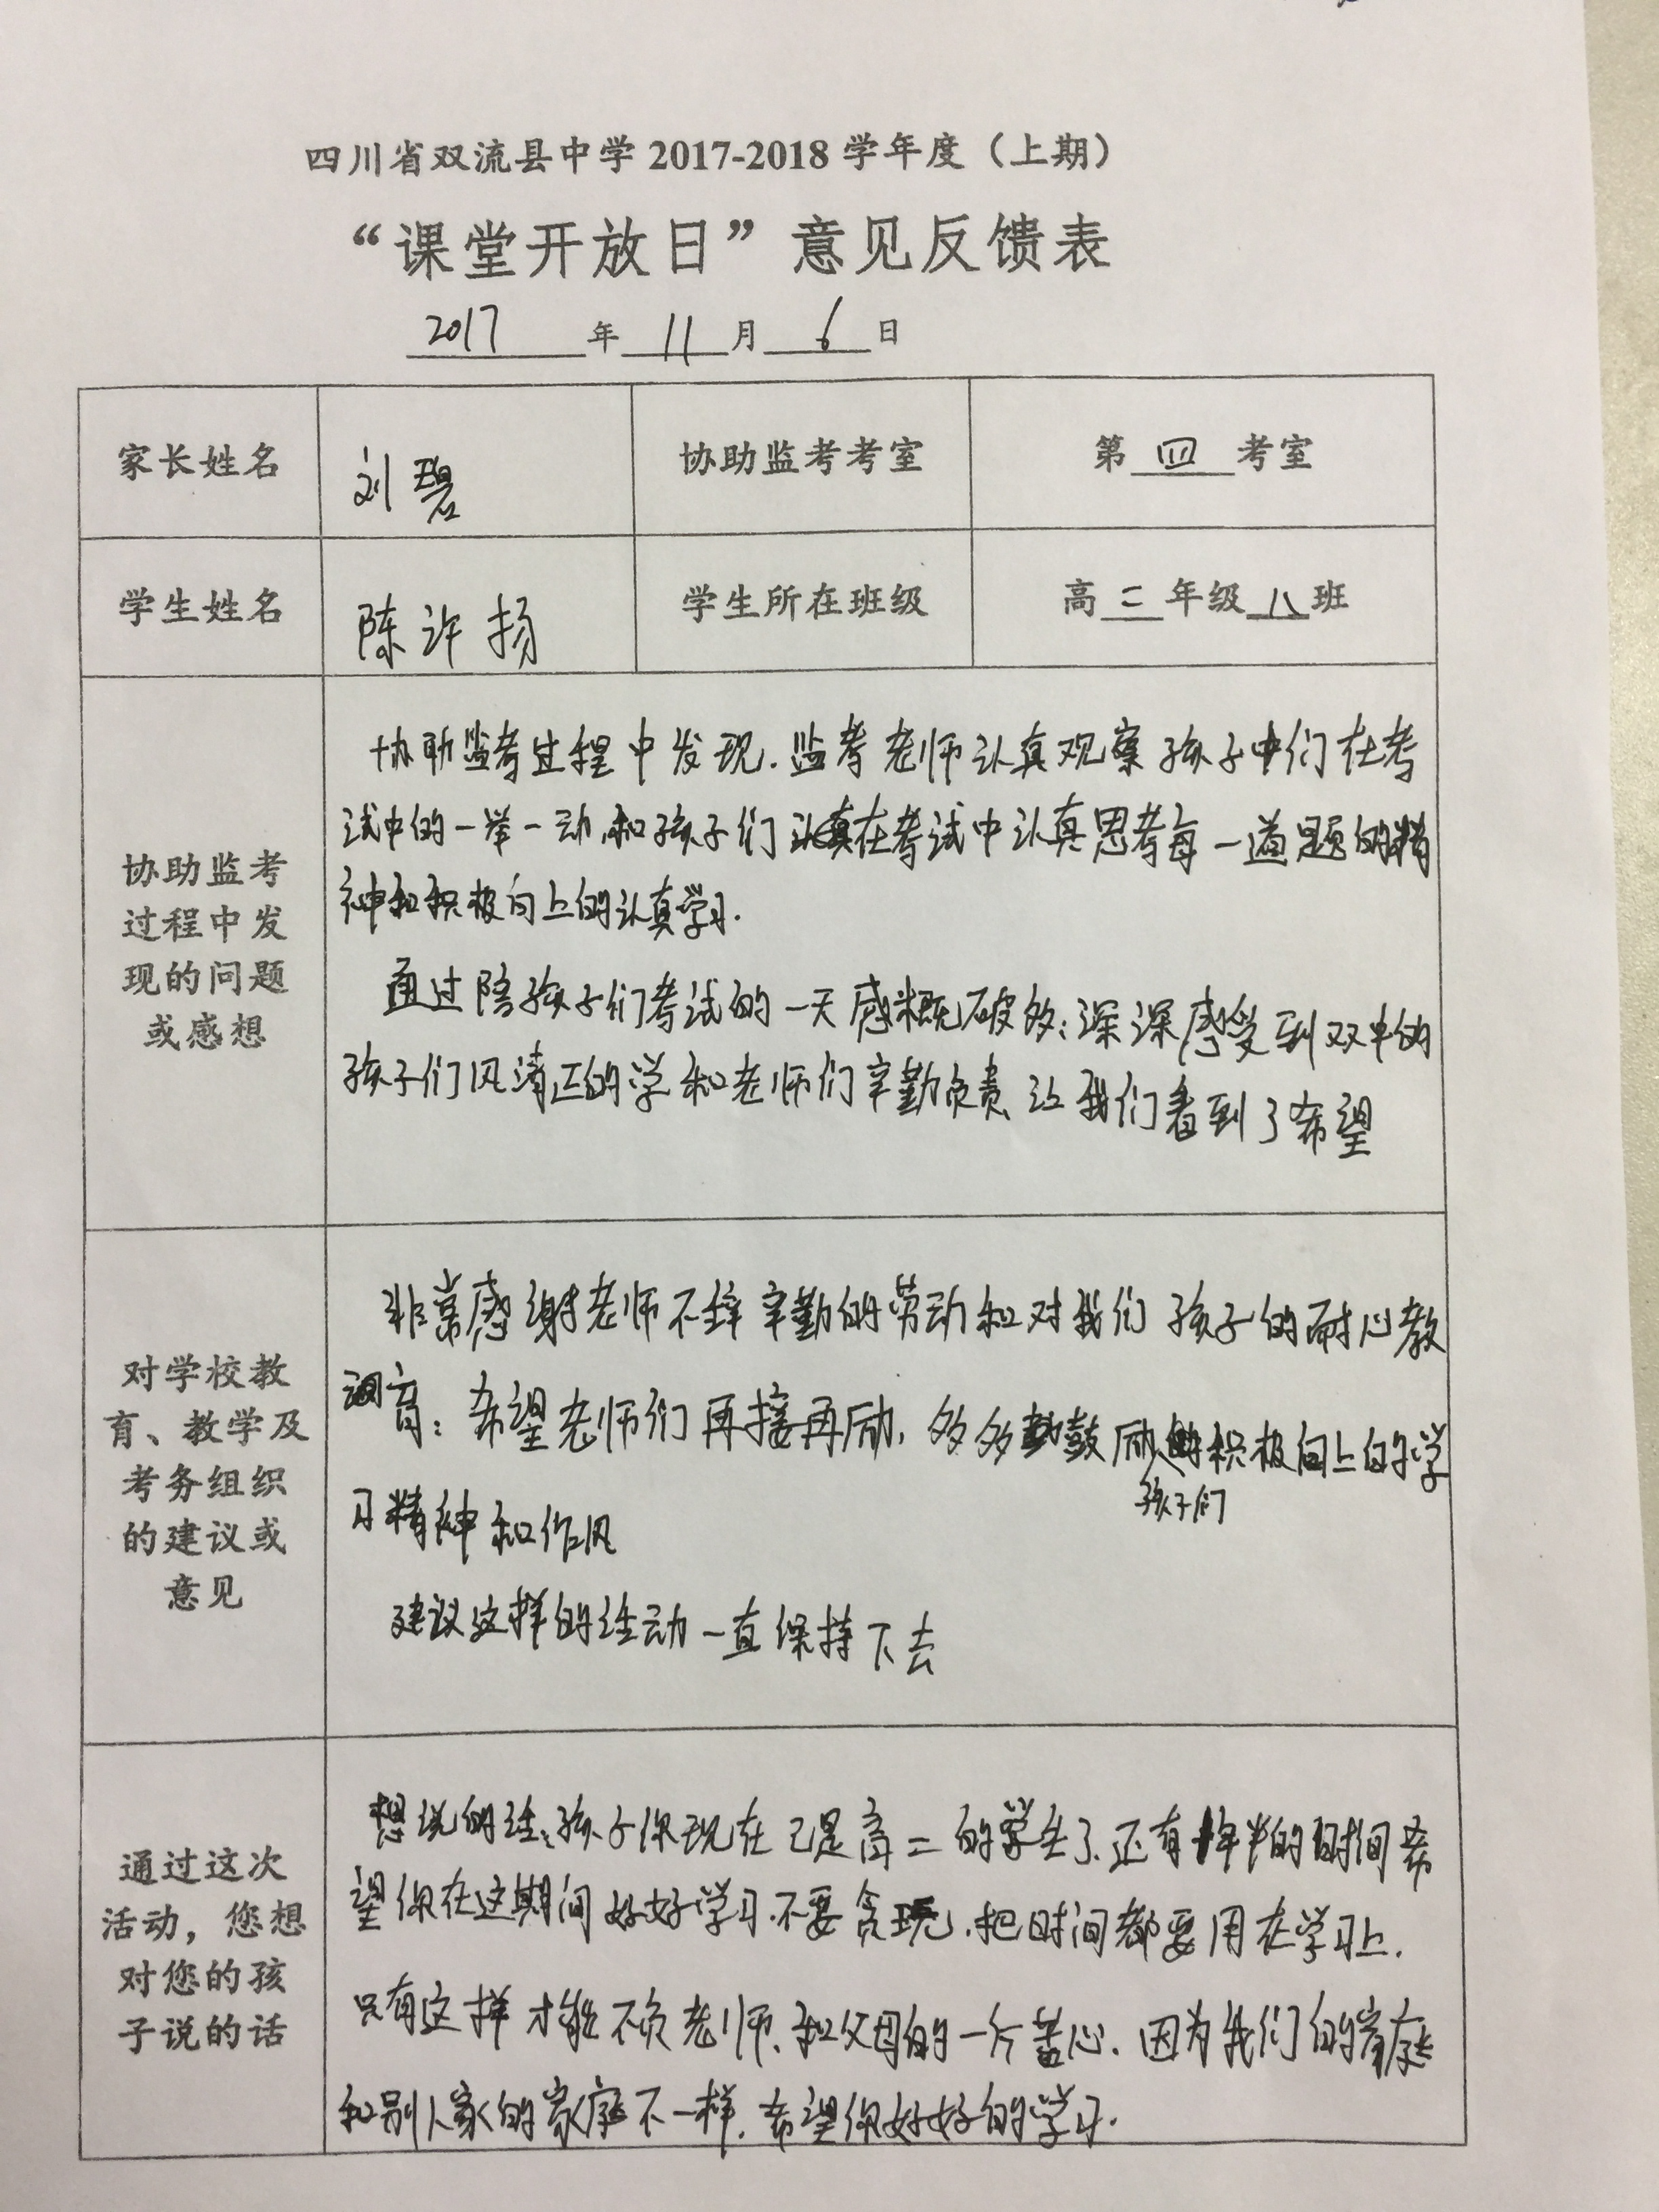 四川省双流县中学 2017-2018 学年度（上期）
“课堂开放日”意见反馈表
2017 年 11 月 6 日
家长姓名 刘碧 协助监考考室 第 四 考室
学生姓名 陈许扬 学生所在班级 高 二 年级 八 班
协助监考
过程中发
现的问题
或感想
协助监考过程中发现.监考老师认真观察孩子们在考
试中的一举一动,和孩子们在考试中认真思考每一道题的精
神和积极向上的认真学习.
通过陪孩子们考试的一天感概破多:深深感受到双中的
孩子们风清正的学和老师们辛勤负责、让我们看到了希望
对学校教
育、教学及
考务组织
的建议或
意见
非常感谢老师不辞辛勤的劳动和对我们孩子的耐心教
育:希望老师们再接再励,多多鼓励孩子们积极向上的学
习精神和作风
建议这样的活动一直保持下去
通过这次
活动，您想
对您的孩
子说的话
想说的话:孩子你现在已是高二的学生了.还有1年半的时间希
望你在这期间好好学习.不要贪玩.把时间都要用在学习上.
只有这样才能不负老师、和父母的一片苦心.因为我们的家庭
和别人家的家庭不一样.希望你好好的学习.